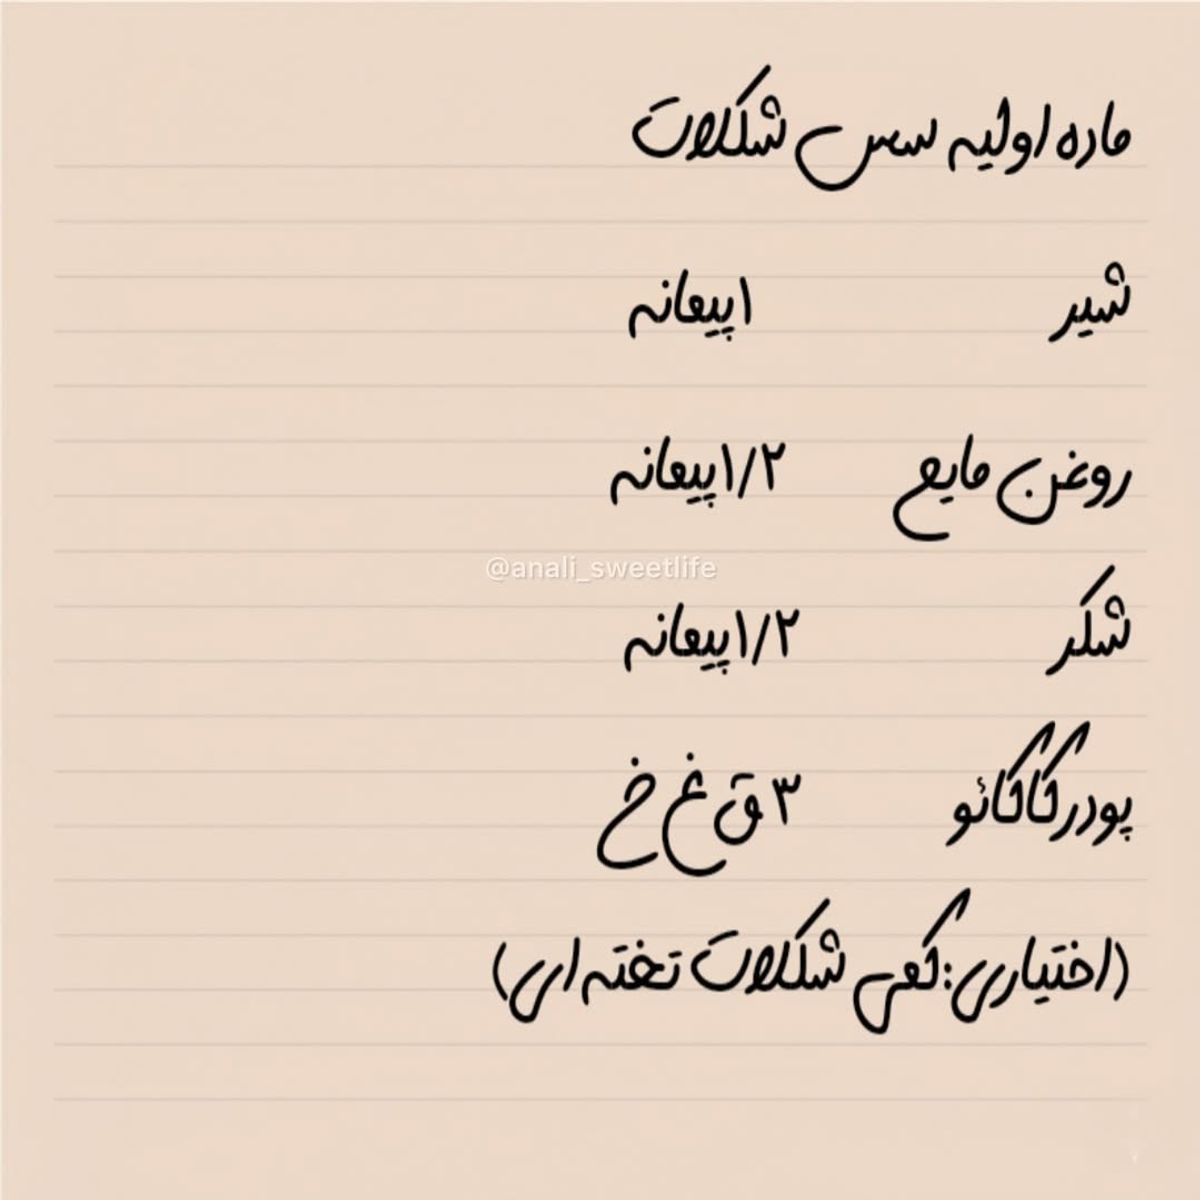 ماده اولیه سس شکلات
شیر ۱پیمانه
روغن مایع ۱/۲پیمانه
@anali_sweetlife
شکر ۱/۲پیمانه
پودرکاکائو ۳ ق غ خ
(اختیاری:کمی شکلات تخته ای)